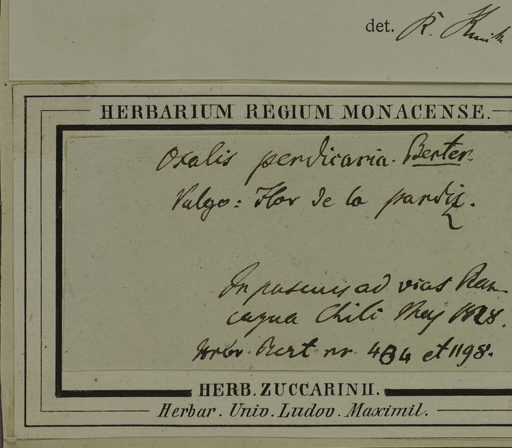 det. R. Knuth
HERBARIUM REGIUM MONACENSE.
Oxalis perdicaria. Berter.
Vulgo: Flor de la perdiz.
In pascuis ad vias Ran-
cagua Chili Maj 1828.
Herb. Bert. nr. 434 et 1198.
HERB. ZUCCARINII.
Herbar. Univ. Ludov. Maximil.